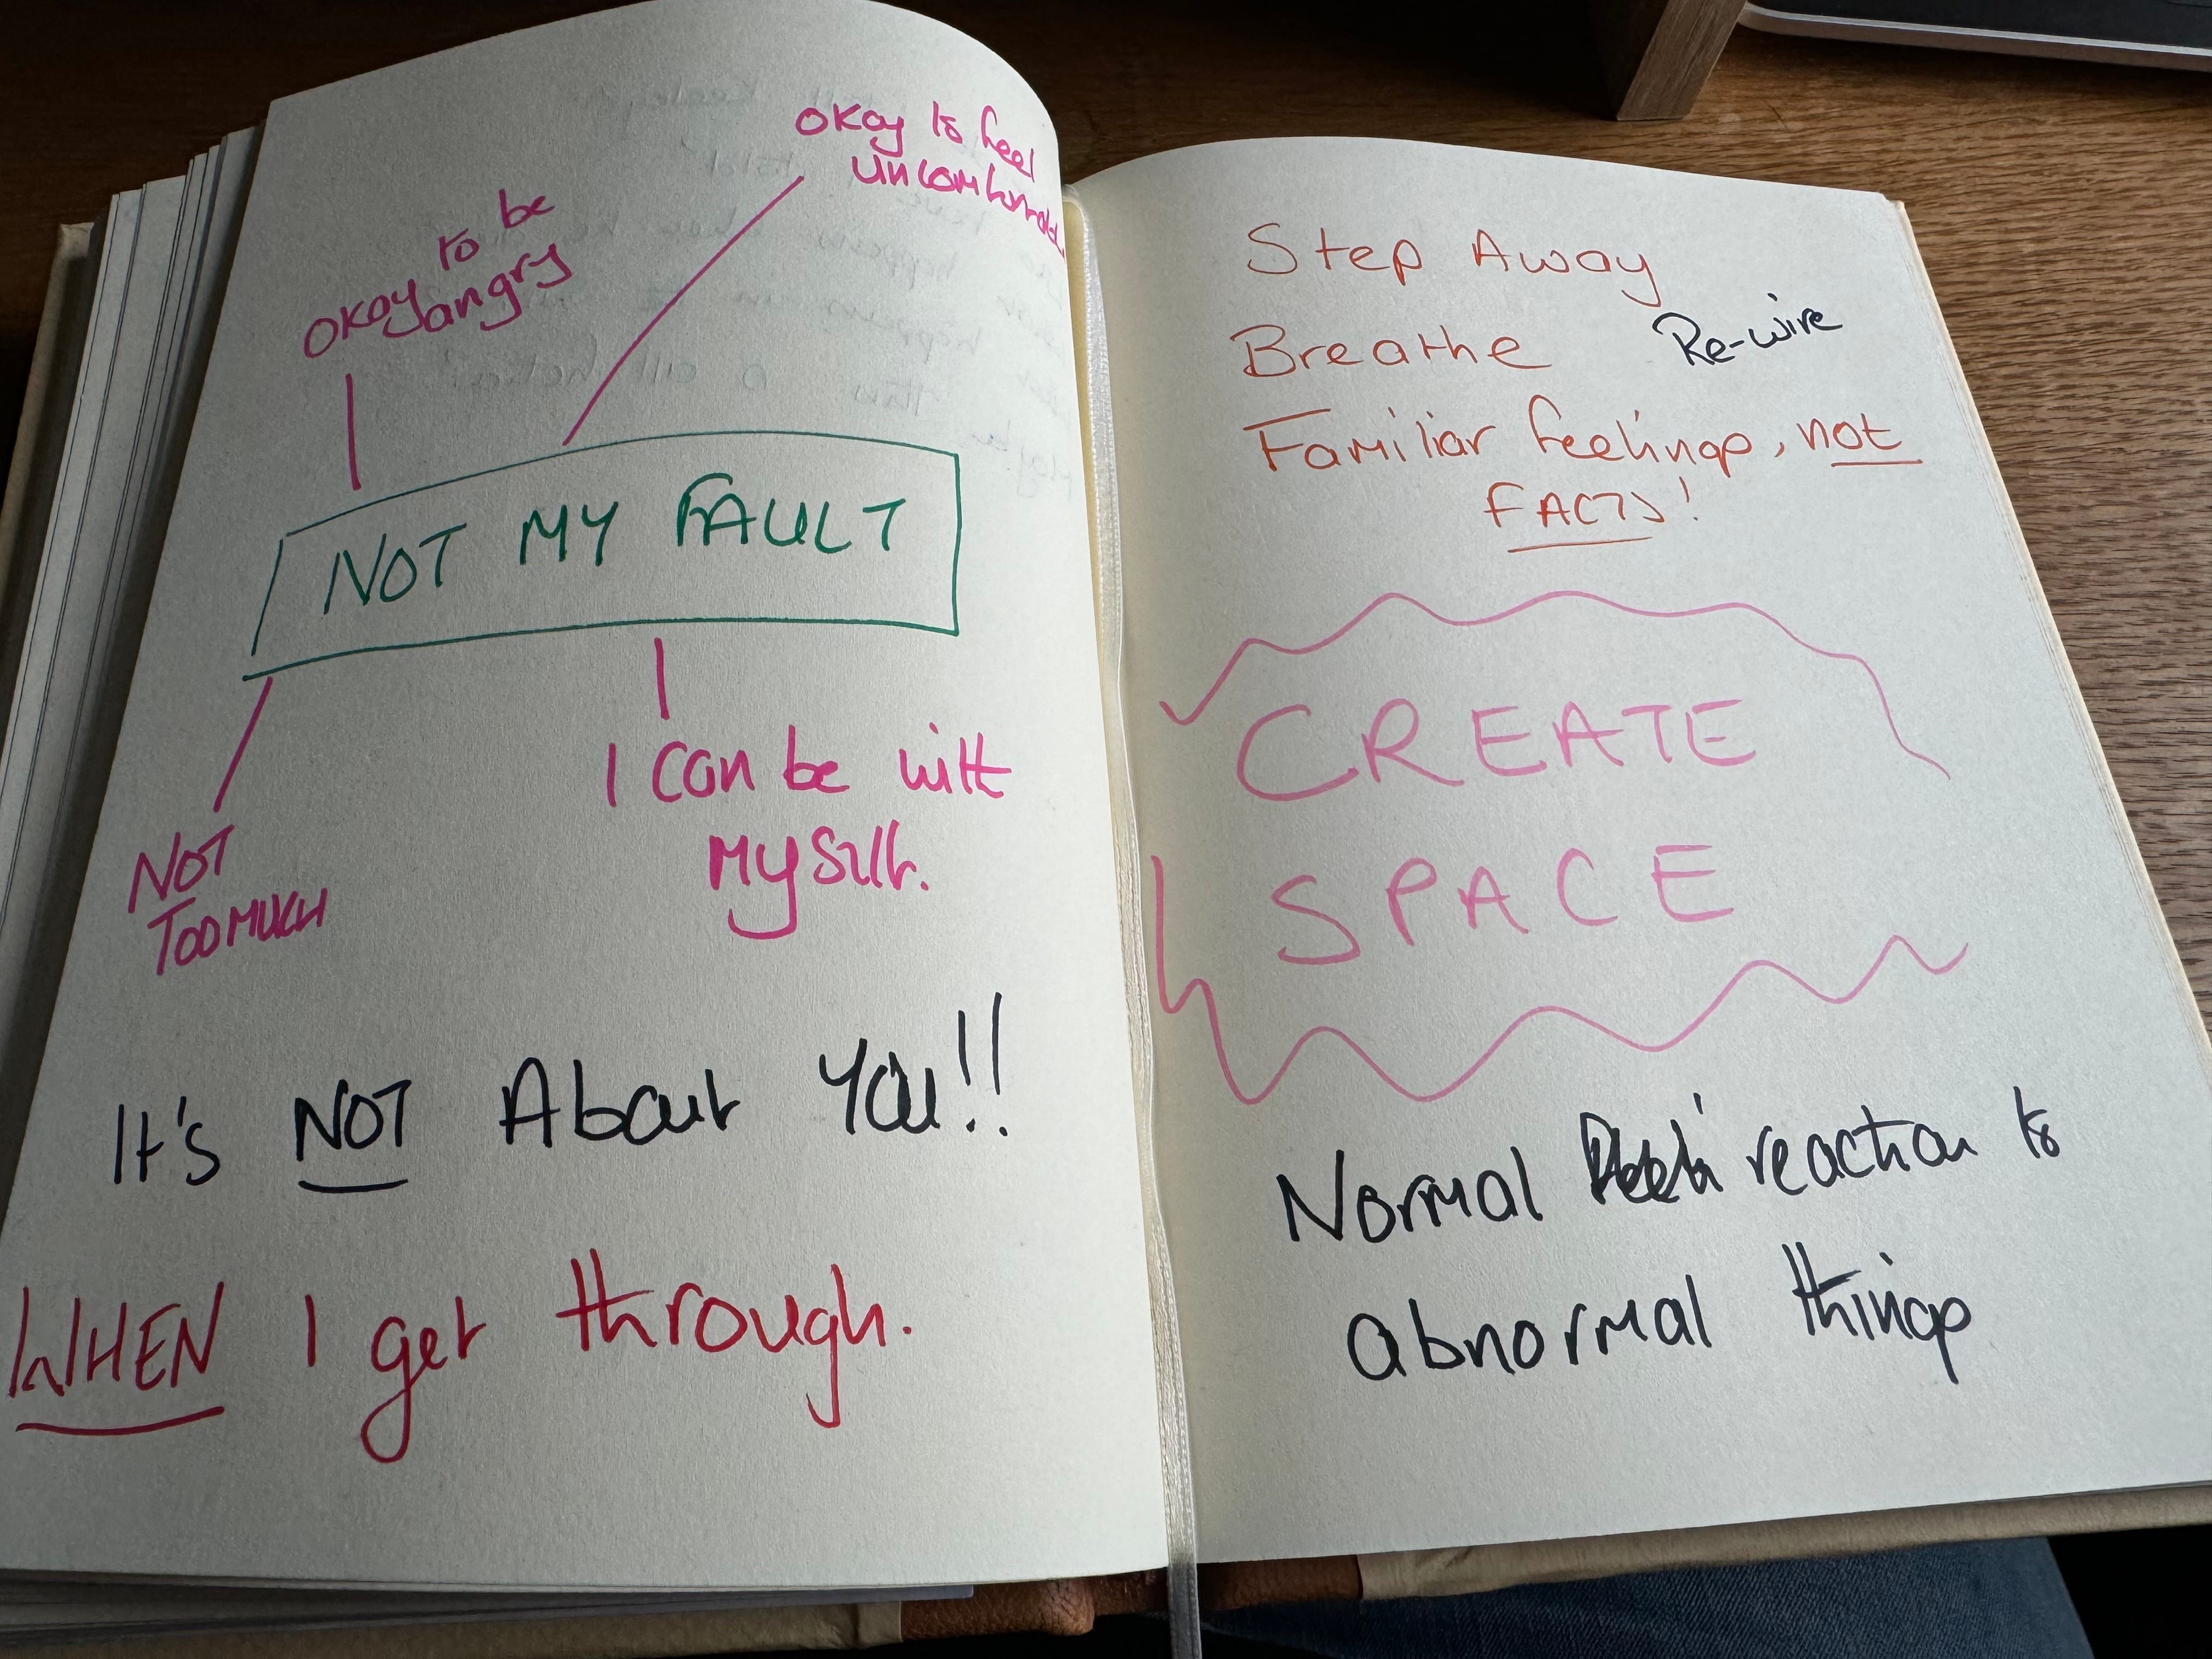 Okay to feel
uncomfortable
Okay to be
angry
NOT MY FAULT
I can be with
myself.
NOT
TOO MUCH
It's NOT About YOU!!
WHEN I get through.
Step Away
Breathe
Re-wire
Familiar feelings, not
FACTS!
CREATE
SPACE
Normal reaction to
abnormal things